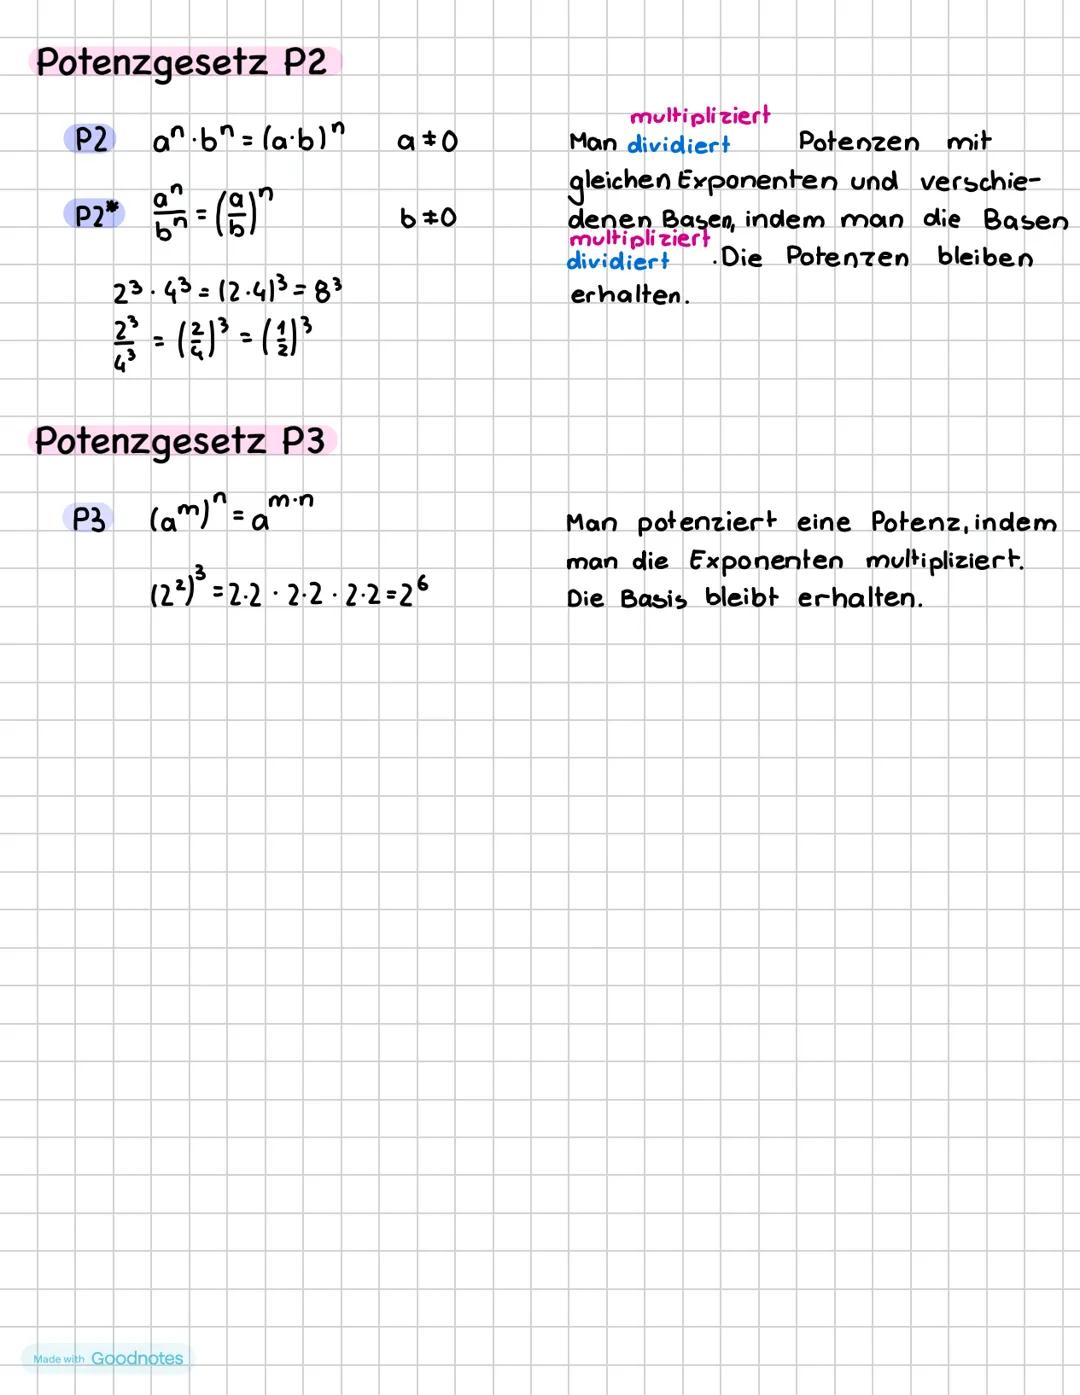 Potenzgesetz P2
P2 aⁿ·bⁿ = (a·b)ⁿ a ≠ 0
P2* aⁿ/bⁿ = (a/b)ⁿ b ≠ 0
2³ · 4³ = (2·4)³ = 8³
2³/4³ = (2/4)³ = (1/2)³
multipliziert
Man dividiert Potenzen mit
gleichen Exponenten und verschie-
denen Basen, indem man die Basen
multipliziert
dividiert . Die Potenzen bleiben
erhalten.
Potenzgesetz P3
P3 (aᵐ)ⁿ = aᵐ·ⁿ
(2²)³ = 2·2 · 2·2 · 2·2 = 2⁶
Man potenziert eine Potenz, indem
man die Exponenten multipliziert.
Die Basis bleibt erhalten.
Made with Goodnotes